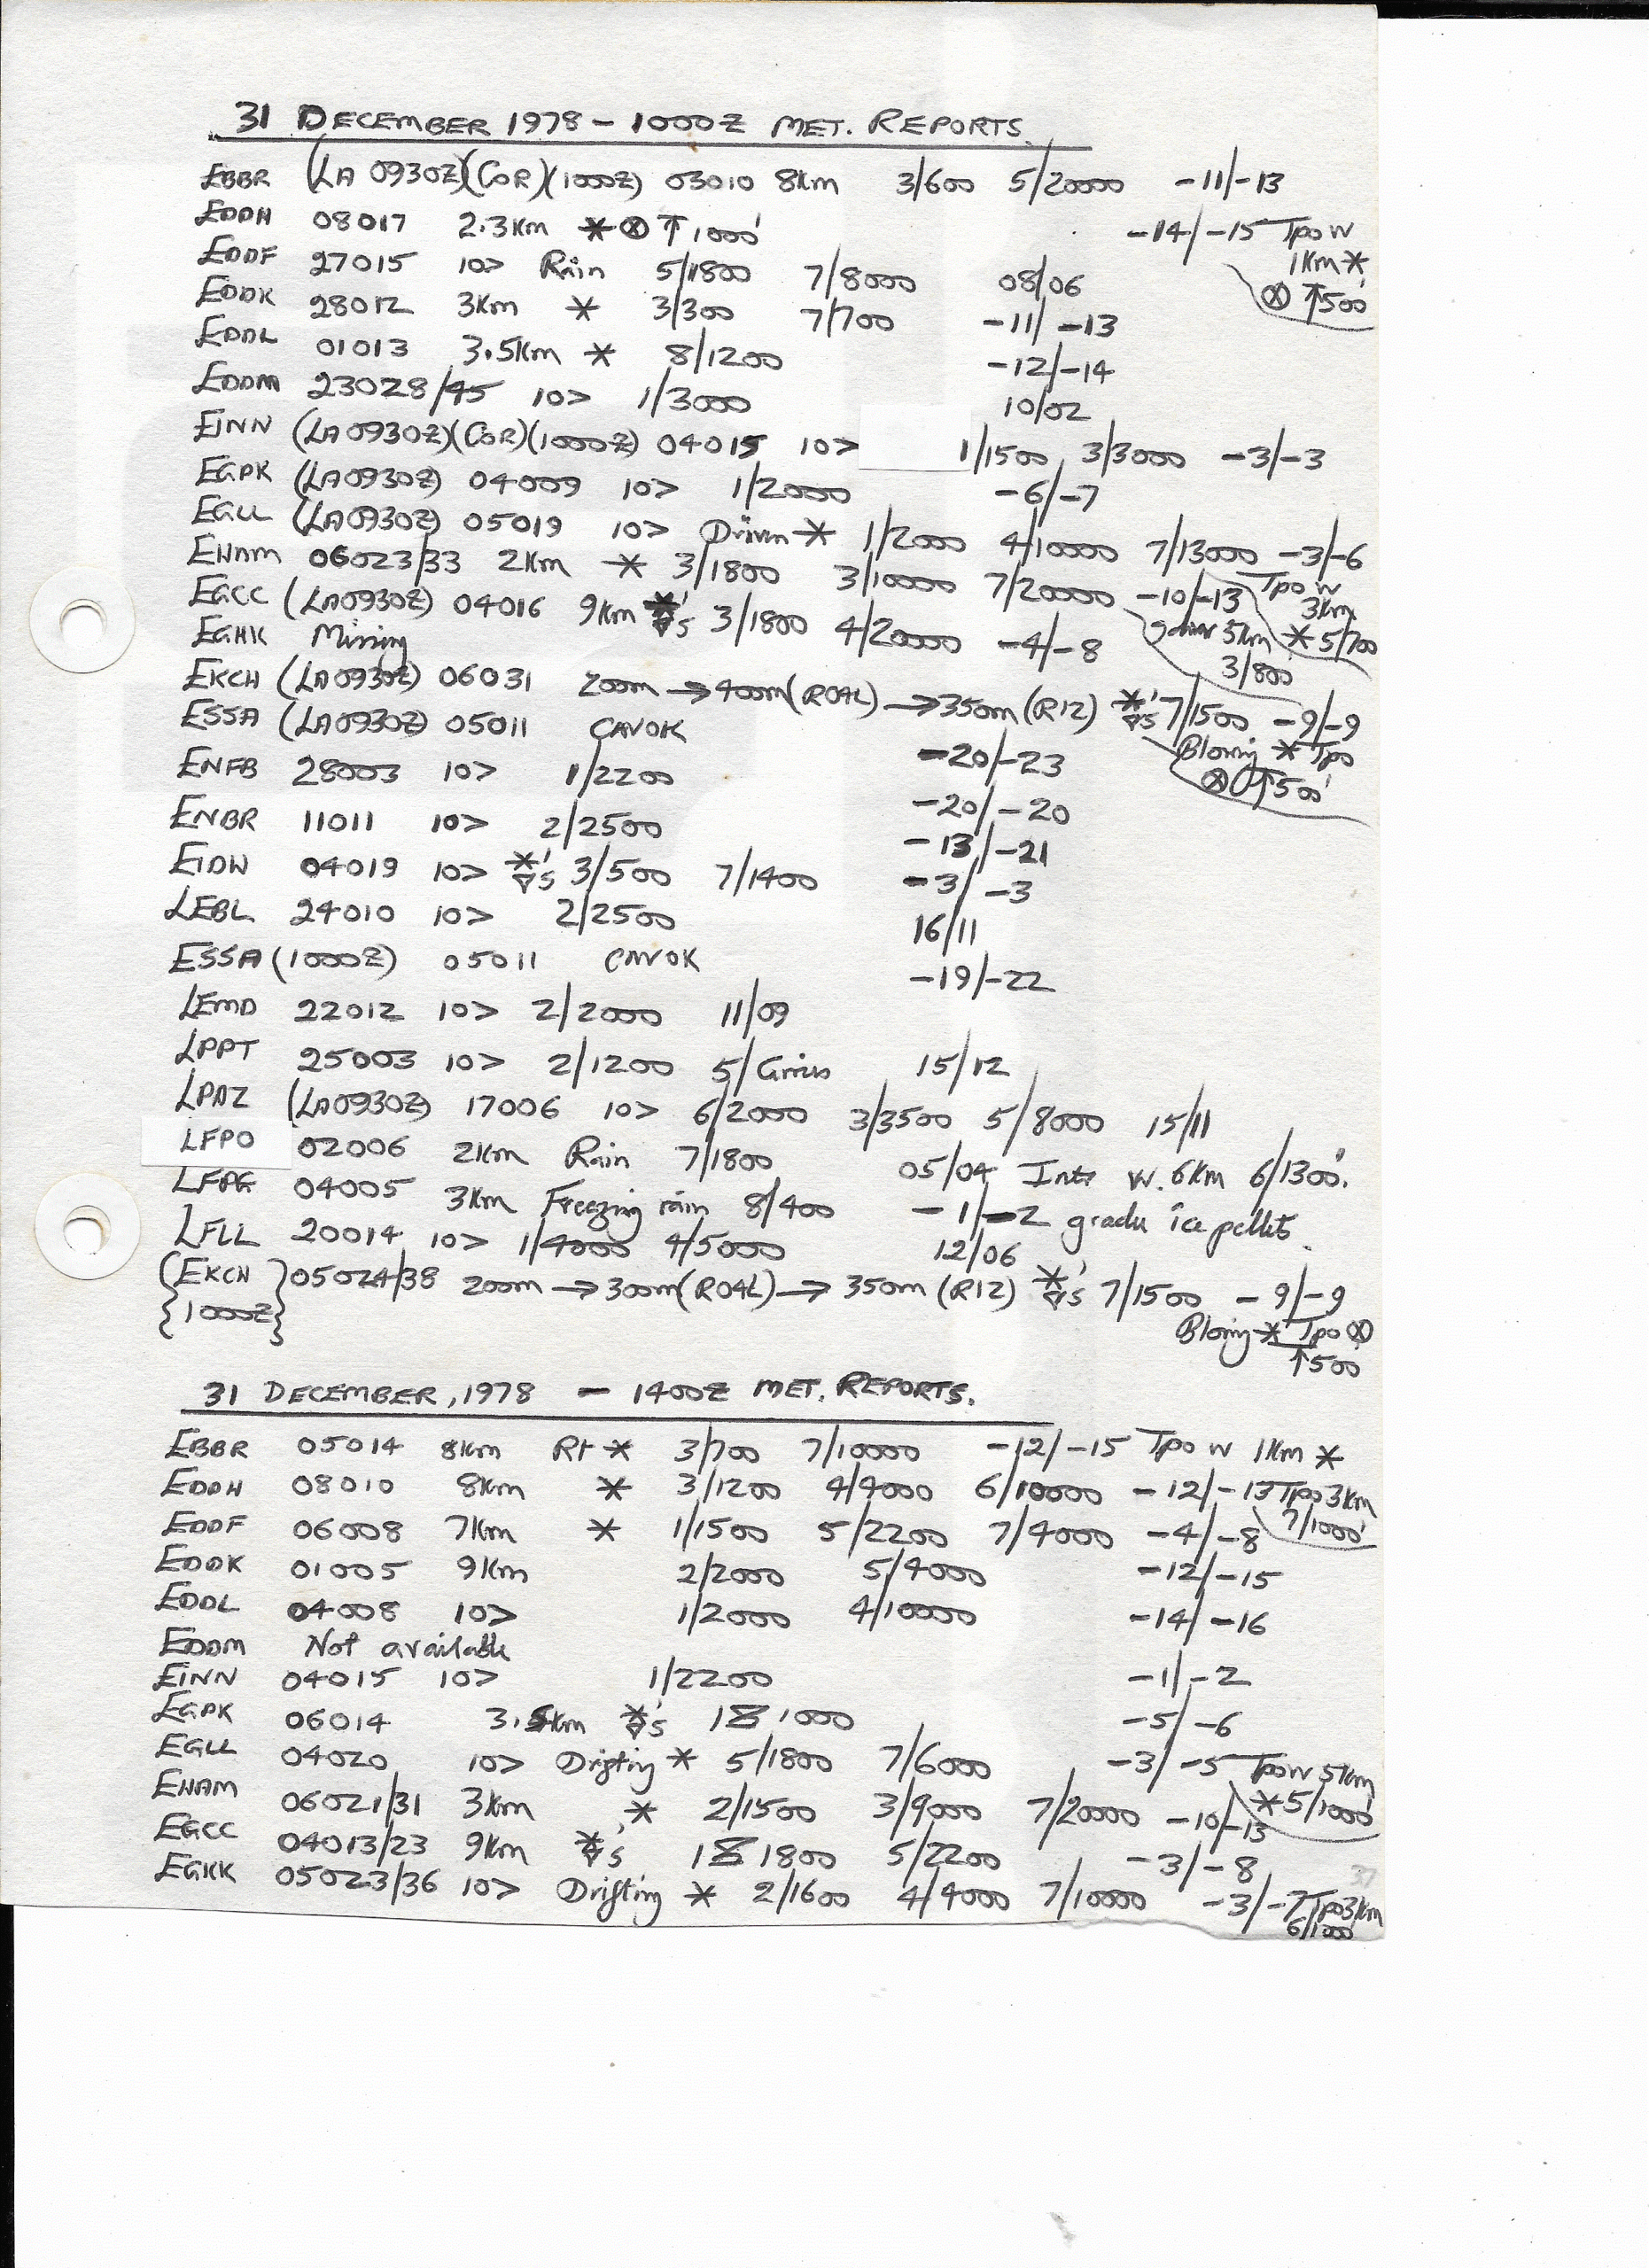 31 DECEMBER 1978 - 1000Z MET. REPORTS.
EBBR (LA 0930Z)(COR)(1000Z) 03010 8km 3/600 5/20000 -11/-13
EDDH 08017 2.3km * ⊗ ↑ 1000' -14/-15 Tpo w
1km *
⊗ ↑500'
EDDF 27015 10> Rain 5/1800 7/8000 08/06
EDDK 28012 3km * 3/300 7/700 -11/-13
EDDL 01013 3.5km * 8/1200 -12/-14
EDDM 23028/45 10> 1/3000 10/02
EINN (LA0930Z)(COR)(1000Z) 04015 10> 1/1500 3/3000 -3/-3
EGPK (LA0930Z) 04009 10> 1/2000 -6/-7
EGLL (LA0930Z) 05019 10> Driven * 1/2000 4/10000 7/13000 -3/-6
EHAM 06023/33 2km * 3/1800 3/10000 7/20000 -10/-13 Tpo w
3km
* 5/700
EGCC (LA0930Z) 04016 9km *'s 3/1800 4/20000 -4/-8 5km
3/800
EGKK Missing
EKCH (LA0930Z) 06031 200m → 400m (R04L) → 350m (R12) *'s 7/1500 -9/-9
Blowing * Tpo
⊗ ↑500'
ESSA (LA0930Z) 05011 CAVOK -20/-23
ENFB 28003 10> 1/2200 -20/-20
ENBR 11011 10> 2/2500 -13/-21
EIDW 04019 10> *'s 3/500 7/1400 -3/-3
LEBL 24010 10> 2/2500 16/11
ESSA (1000Z) 05011 CAVOK -19/-22
LEMD 22012 10> 2/2000 11/09
LPPT 25003 10> 2/1200 5/Cirrus 15/12
LPAZ (LA0930Z) 17006 10> 6/2000 3/3500 5/8000 15/11
LFPO 02006 2km Rain 7/1800 05/04 Inter w. 6km 6/1300'.
LFPG 04005 3km Freezing rain 8/400 -1/-2 gradu ice pellets.
LFLL 20014 10> 1/4000 4/5000 12/06
{EKCH 1000Z} 05024/38 200m → 300m (R04L) → 350m (R12) *'s 7/1500 -9/-9
Blowing * Tpo ⊗
↑500
31 DECEMBER, 1978 - 1400Z MET. REPORTS.
EBBR 05014 8km Rt * 3/700 7/10000 -12/-15 Tpo w 1km *
EDDH 08010 8km * 3/1200 4/4000 6/10000 -12/-13 Tpo 3km
7/1000'
EDDF 06008 7km * 1/1500 5/2200 7/4000 -4/-8
EDDK 01005 9km 2/2000 5/4000 -12/-15
EDDL 04008 10> 1/2000 4/10000 -14/-16
EDDM Not available
EINN 04015 10> 1/2200 -1/-2
EGPK 06014 3.5km *'s 18 1000 -5/-6
EGLL 04020 10> Drifting * 5/1800 7/6000 -3/-5 Tpo w 5km
* 5/1000'
EHAM 06021/31 3km * 2/1500 3/9000 7/20000 -10/-13
EGCC 04013/23 9km *'s 18 1800 5/2200 -3/-8
EGKK 05023/36 10> Drifting * 2/1600 4/4000 7/10000 -3/-7 Tpo 3km
6/1000
37